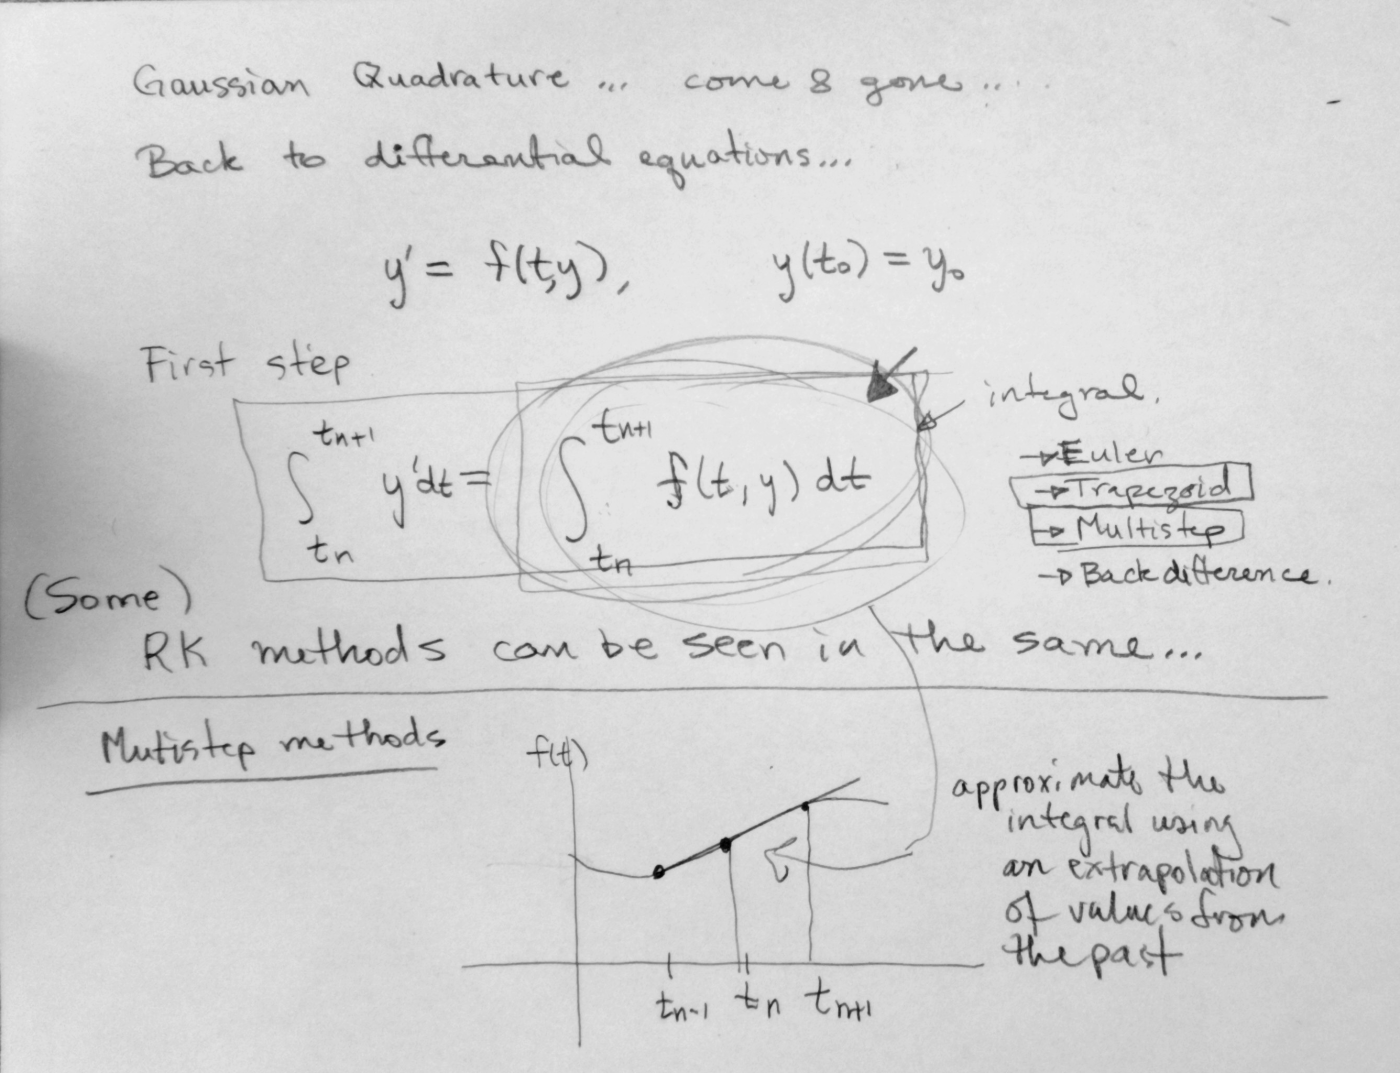 Gaussian Quadrature ... come & gone ...
Back to differential equations...
y' = f(t,y), y(t₀) = y₀
First step
integral.
∫_{tn}^{tn+1} y'dt = ∫_{tn}^{tn+1} f(t,y) dt
→ Euler
→ Trapezoid
→ Multistep
→ Backdifference.
(Some)
RK methods can be seen in the same...
Mutistep methods
f(t)
approximate the
integral using
an extrapolation
of values from
the past
tn-1 tn tn+1